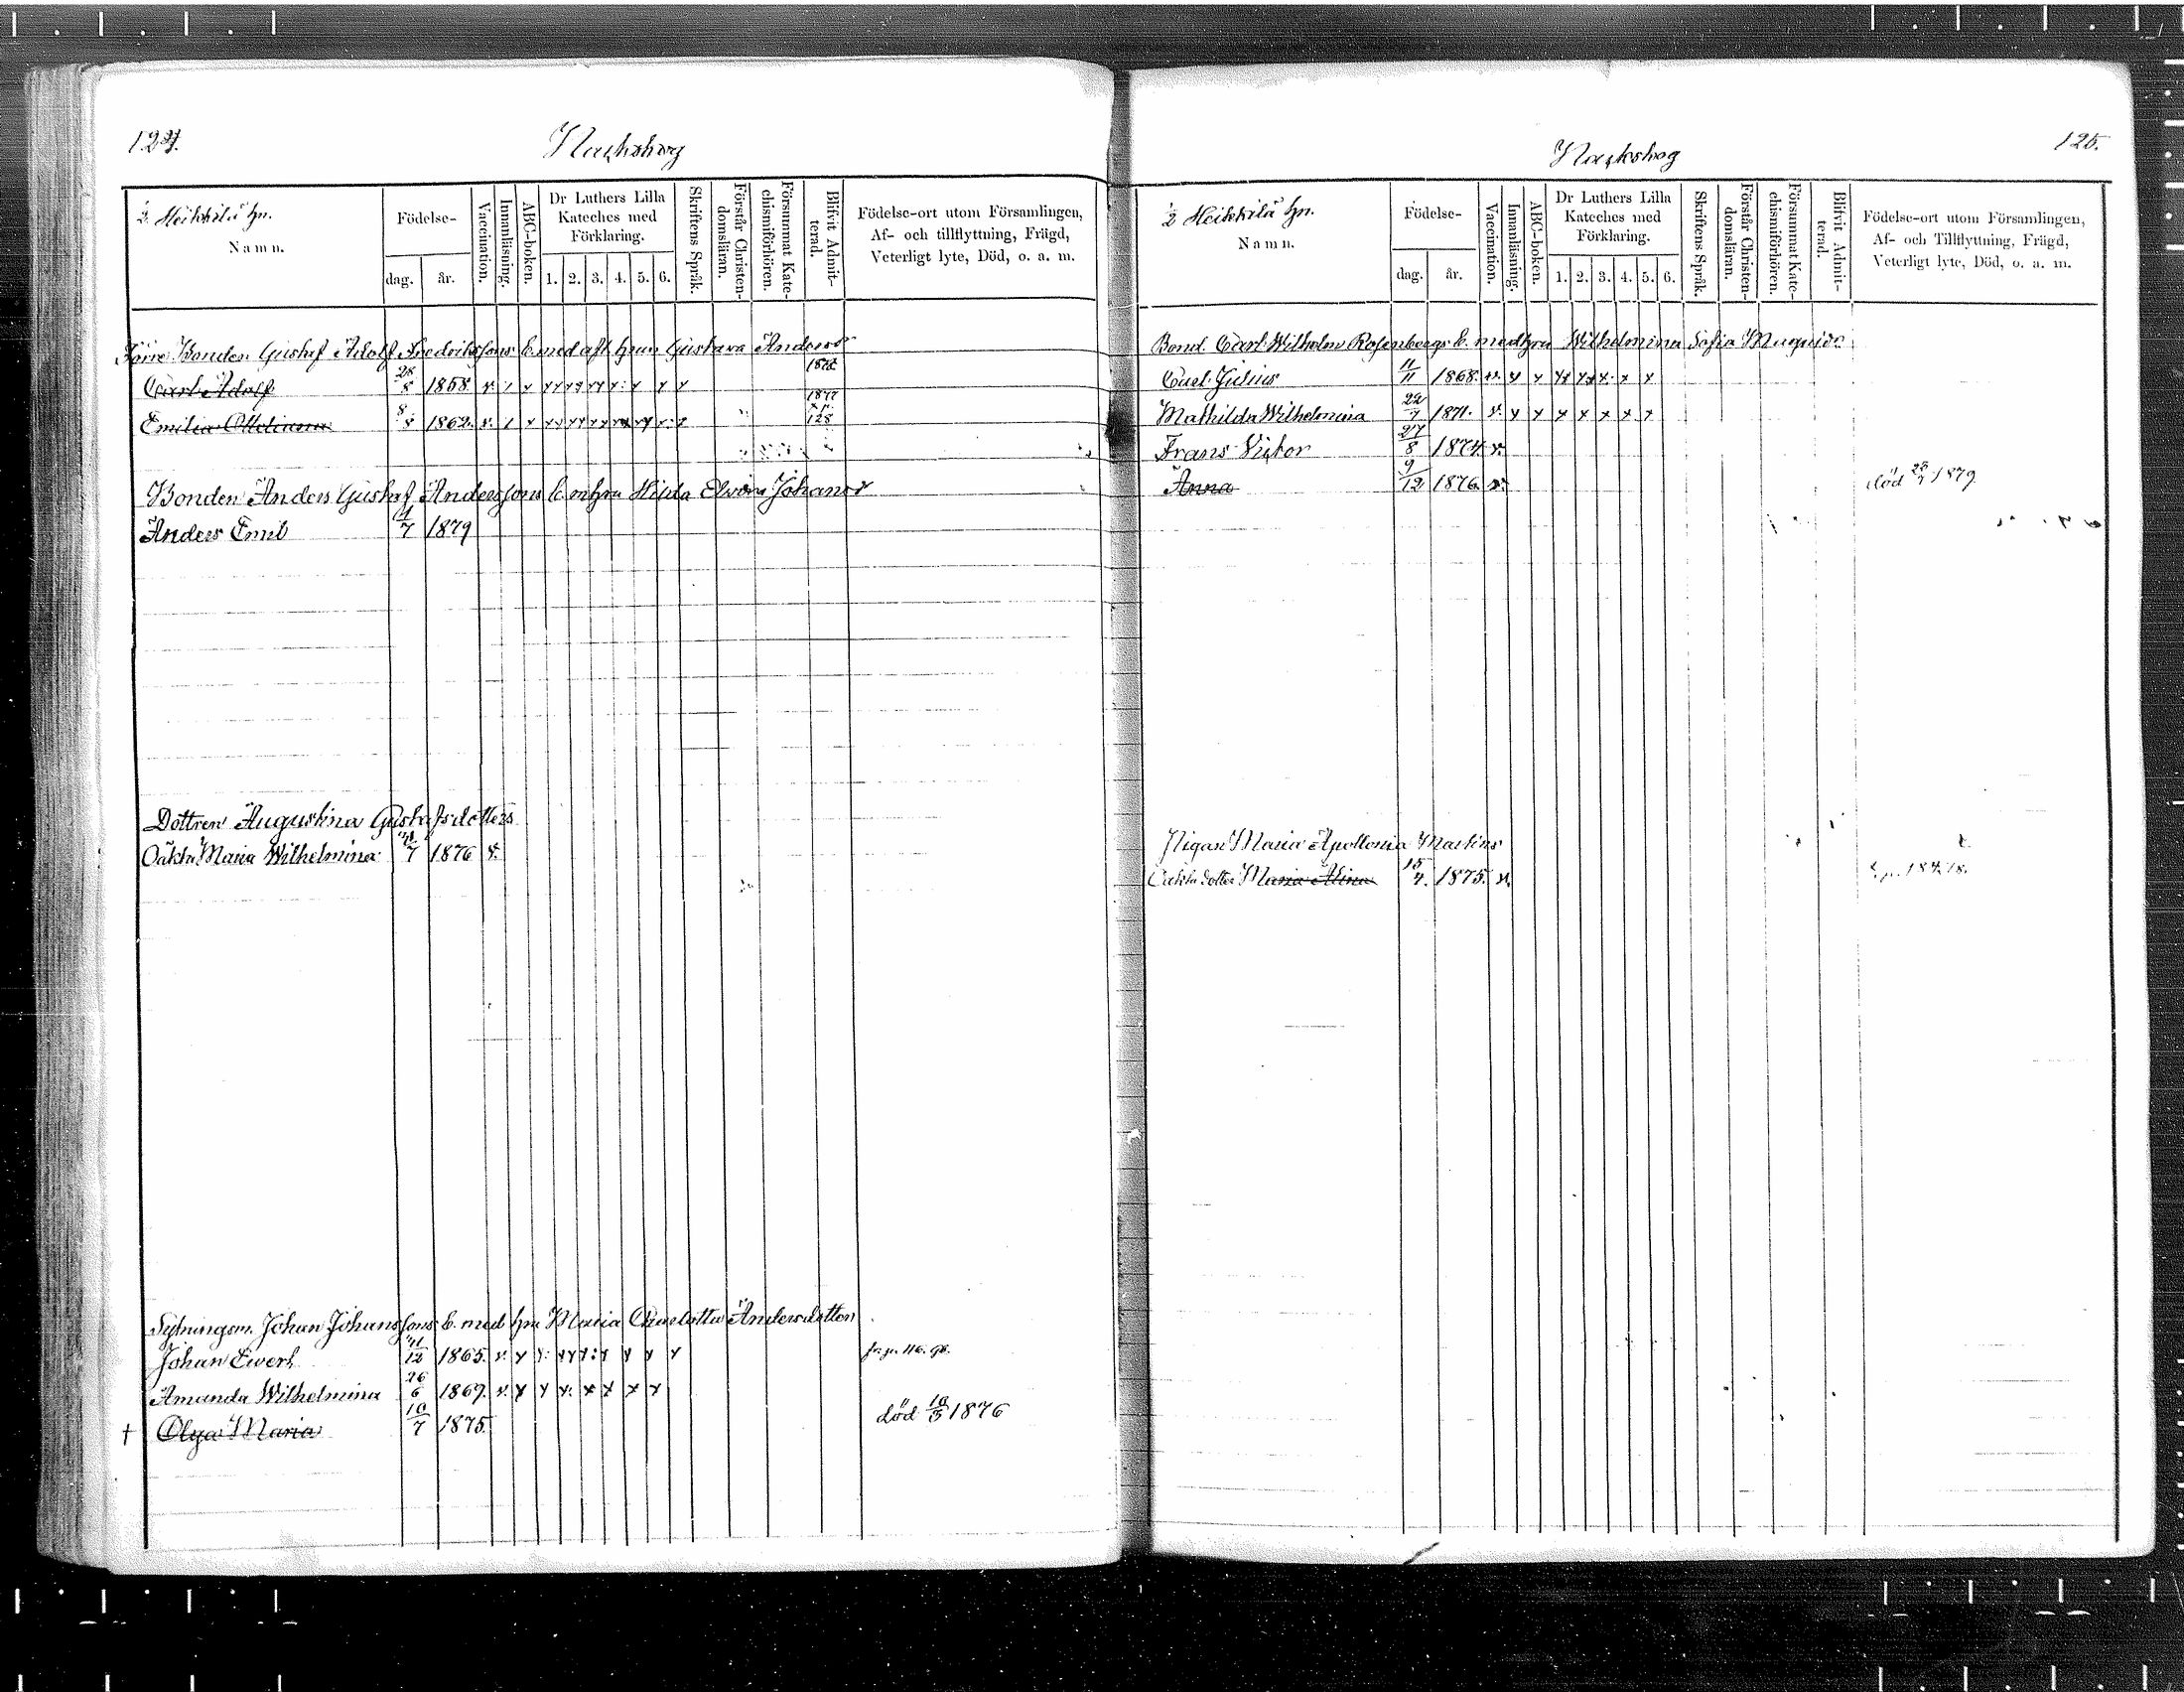 124.
2 Heikkilä hn.
Namn.
Födelse-
dag.
år.
Vaccination.
Innanläsning.
ABC-boken.
Dr Luthers Lilla
Kateches med
Förklaring.
1. 2. 3. 4. 5. 6.
Skriftens Språk.
Förstår Christen-
domsläran.
Försummat Kate-
chismiförhören.
Blifvit Admit-
terad.
Födelse-ort utom Församlingen,
Af- och tillflyttning, Frägd,
Veterligt lyte, Död, o. a. m.
Bonden Gustaf Adolf Fredrikssons b. med afl. hrun Gustava Andersdr
Carl Adolf 28/8 1858. 1875
Emilia 8/8 1862. 1877 128
Bonden Anders Gustaf Anderssons b. m hru Hilda Johansdr
Anders Emil 4/7 1879
Dottren Augustina Gustafsdotters
Oäkta Maria Wilhelmina 7 1876
Sytningsm. Johan Johanssons b. med hru Maria Charlotta Andersdotter
Johan Evert 12 1865. 116.
Amanda Wilhelmina 26/6 1869.
† Olga Maria 10/7 1875. död 10/3 1876
125.
2 Heikkilä hn.
Namn.
Födelse-
dag.
år.
Vaccination.
Innanläsning.
ABC-boken.
Dr Luthers Lilla
Kateches med
Förklaring.
1. 2. 3. 4. 5. 6.
Skriftens Språk.
Förstår Christen-
domsläran.
Försummat Kate-
chismiförhören.
Blifvit Admit-
terad.
Födelse-ort utom Församlingen,
Af- och Tillflyttning, Frägd,
Veterligt lyte, Död, o. a. m.
Bond. Carl Wilhelm Rosenbergs b. med hru Wilhelmina Sofia
Julius 11/11 1868.
Mathilda Wilhelmina 22/7 1871.
Frans Victor 27/8 1874.
Anna 9/12 1876. död 1879
Pigan Maria Apollonia Martins
Oäkta dotter Maria Alina 15/4. 1875.